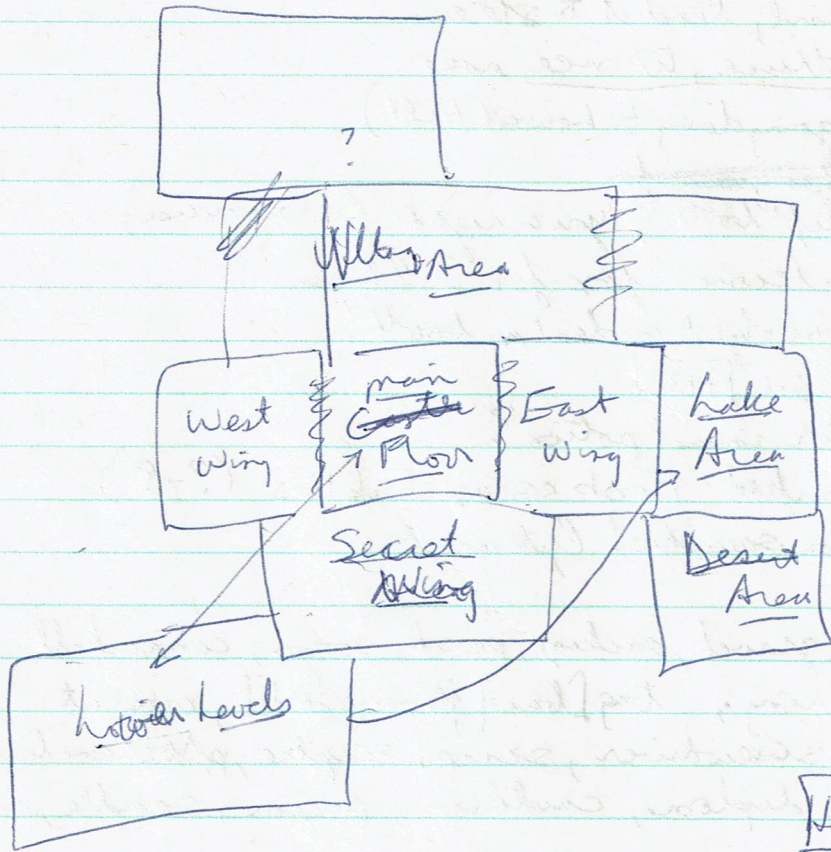 ?
Area
West
Wing
Main
Floor
East
Wing
Lake
Area
Secret
Wing
Desert
Area
Lower Levels